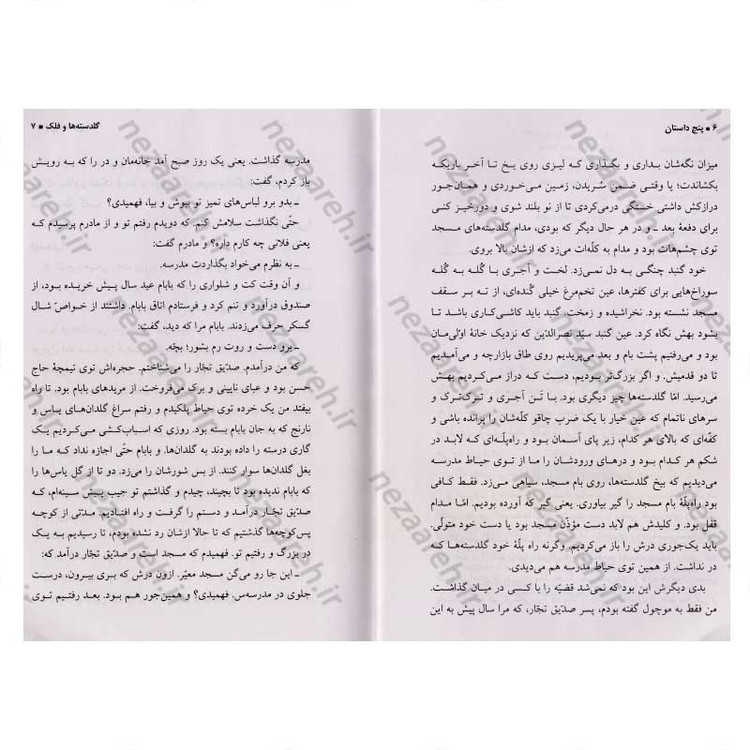 ۶ ■ پنج داستان
میزان نگه‌شان بداری و بگذاری که لیزی روی یخ تا آخر باریکه
بکشاندت؛ یا وقتی ضمن سُریدن، زمین می‌خوردی و همان‌جور
درازکش داشتی خستگی درمی‌کردی تا از نو بلند شوی و دورخیز کنی
برای دفعهٔ بعد ـ و در هر حال دیگر که بودی، مدام گلدسته‌های مسجد
توی چشم‌هات بود و مدام به کلّه‌ات می‌زد که ازشان بالا بروی.
خود گنبد چنگی به دل نمی‌زد. لخت و آجری با گُله به گُله
سوراخ‌هایی برای کفترها، عین تخم‌مرغ خیلی گُنده‌ای، از ته بر سقف
مسجد نشسته بود. نخراشیده و زمخت. گنبد باید کاشی‌کاری باشد تا
بشود بهش نگاه کرد. عین گنبد سیّد نصرالدین که نزدیک خانهٔ اولی‌مان
بود و می‌رفتیم پشت بام و بعد می‌پریدیم روی طاق بازارچه و می‌آمدیم
تا دو قدمیش. و اگر بزرگ‌تر بودیم، دست که دراز می‌کردیم بهش
می‌رسید. امّا گلدسته‌ها چیز دیگری بود. با تَن آجری و تَرک‌تَرک و
سرهای ناتمام که عین خیار با یک ضرب چاقو کلّه‌شان را پرانده باشی و
کفّه‌ای که بالای هر کدام، زیر پای آسمان بود و راه‌پلّه‌ای که لابد در
شکم هر کدام بود و درهای ورودشان را ما از توی حیاط مدرسه
می‌دیدیم که بیخ گلدسته‌ها، روی بام مسجد، سیاهی می‌زد. فقط کافی
بود راه‌پلّهٔ بام مسجد را گیر بیاوری. یعنی گیر که آورده بودیم. امّا مدام
قفل بود. و کلیدش هم لابد دست مؤذّن مسجد بود یا دست خود متولّی.
باید یک‌جوری درش را باز می‌کردیم. وگرنه راه پلّهٔ خود گلدسته‌ها که
در نداشت. از همین توی حیاط مدرسه هم می‌دیدی.
بدی دیگرش این بود که نمی‌شد قضیّه را با کسی در میان گذاشت.
من فقط به موچول گفته بودم، پسر صدّیق تجّار، که مرا سال پیش به این
گلدسته‌ها و فلک ■ ۷
مدرسه گذاشت. یعنی یک روز صبح آمد خانه‌مان و در را که به رویش
باز کردم، گفت:
ـ بدو برو لباس‌های تمیز تو بپوش و بیا، فهمیدی؟
حتّی نگذاشت سلامش کنم. که دویدم رفتم تو و از مادرم پرسیدم که
یعنی فلانی چه کارم داره؟ و مادرم گفت:
ـ به نظرم می‌خواد بگذاردت مدرسه.
و آن وقت کت و شلواری را که بابام عید سال پیش خریده بود، از
صندوق درآورد و تنم کرد و فرستادم اتاق بابام. داشتند از خواصّ شال
گسکر حرف می‌زدند. بابام مرا که دید، گفت:
ـ برو دست و روت رم بشور؛ بچّه.
که من درآمدم. صدّیق تجّار را می‌شناختم. حجره‌اش توی تیمچهٔ حاج
حسن بود و عبای نایینی و برک می‌فروخت. از مریدهای بابام بود. تا راه
بیفتد من یک خرده توی حیاط پلکیدم و رفتم سراغ گلدان‌های یاس و
نارنج که به جان بابام بسته بود. روزی که اسباب‌کشی می‌کردیم یک
گاری درسته را داده بودند به گلدان‌ها. و بابام حتّی اجازه نداد که ما را
بغل گلدان‌ها سوار کنند. از بس شورشان را می‌زد. دو تا از گل یاس‌ها را
که بابام ندیده بود تا بچیند، چیدم و گذاشتم تو جیب پیش سینه‌ام، که
صدّیق تجّار درآمد و دستم را گرفت و راه افتادیم. مدتی از کوچه
پس‌کوچه‌ها گذشتیم که تا حالا ازشان رد نشده بودم، تا رسیدیم به یک
در بزرگ و رفتیم تو. فهمیدم که مسجد است و صدّیق تجّار درآمد که:
ـ این جا رو می‌گن مسجد معیّر. ازون درش که بری بیرون، درست
جلوی در مدرسه‌س. فهمیدی؟ و همین‌جور هم بود. بعد رفتیم توی
nezaareh.ir